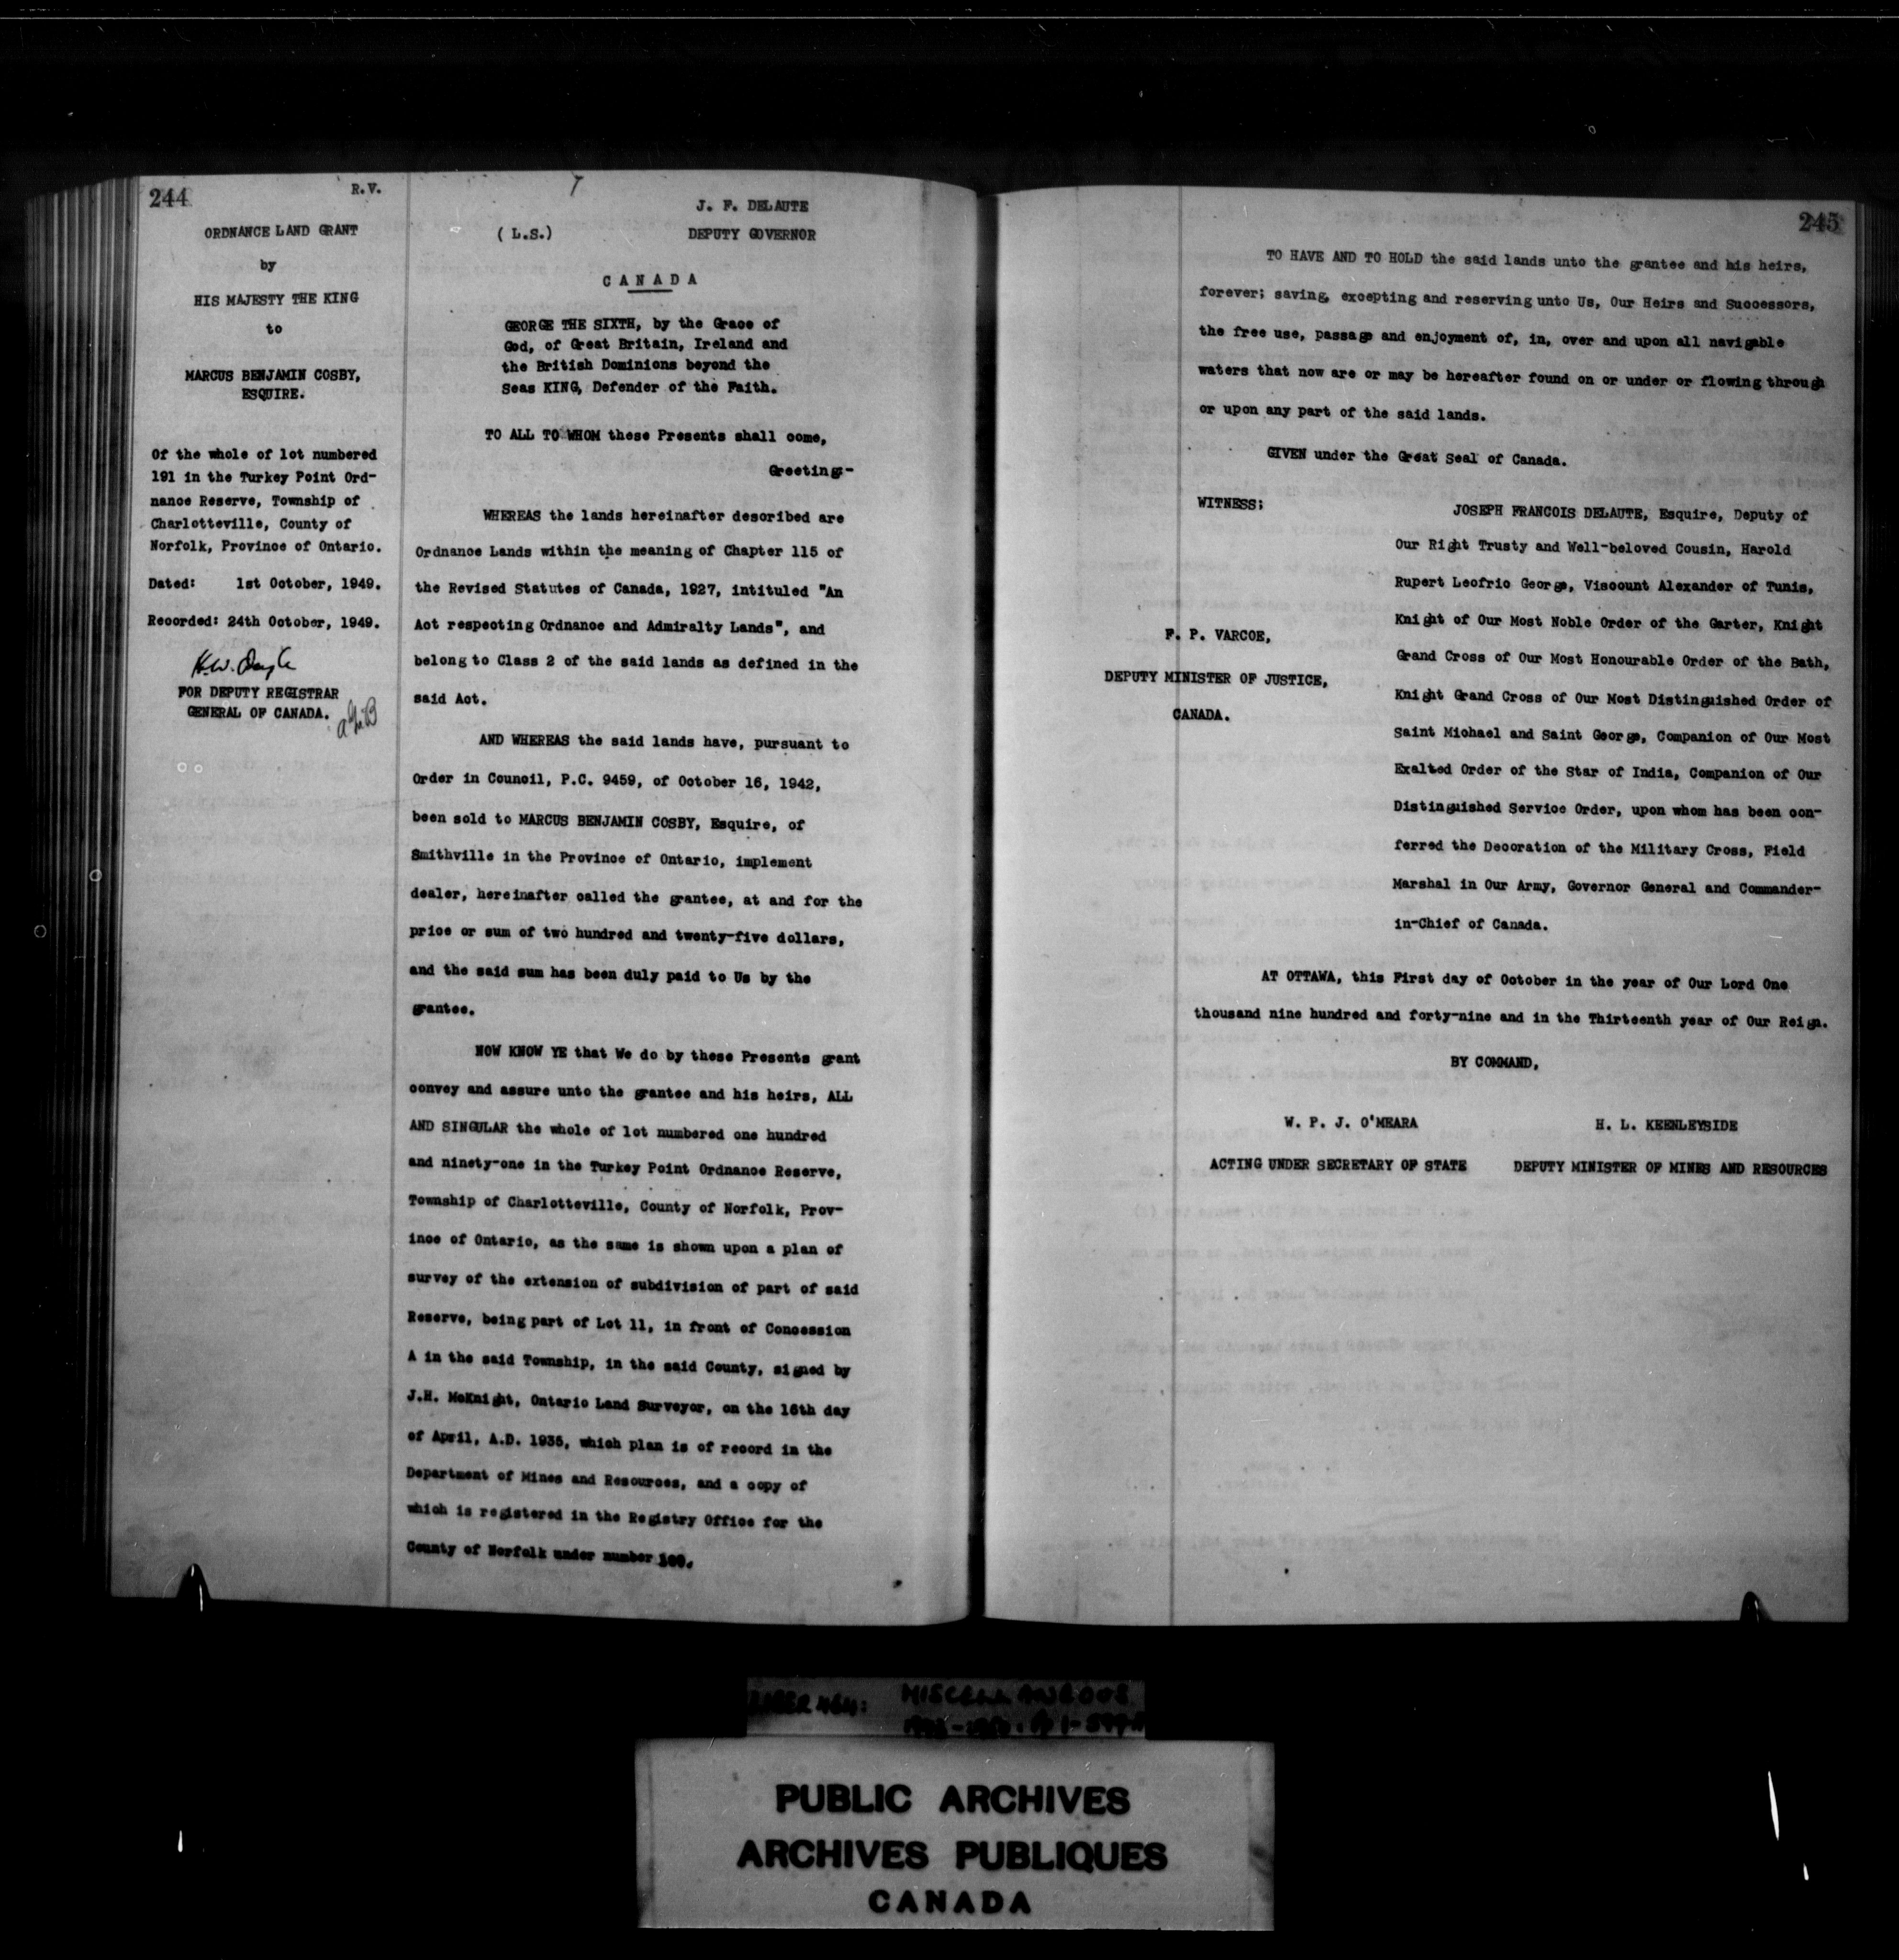 244
R.V.
ORDNANCE LAND GRANT
by
HIS MAJESTY THE KING
to
MARCUS BENJAMIN COSBY,
ESQUIRE.
Of the whole of lot numbered
191 in the Turkey Point Ord-
nance Reserve, Township of
Charlotteville, County of
Norfolk, Province of Ontario.
Dated: 1st October, 1949.
Recorded: 24th October, 1949.
FOR DEPUTY REGISTRAR
GENERAL OF CANADA.
J. F. DELAUTE
(L.S.) DEPUTY GOVERNOR
CANADA
GEORGE THE SIXTH, by the Grace of
God, of Great Britain, Ireland and
the British Dominions beyond the
Seas KING, Defender of the Faith.
TO ALL TO WHOM these Presents shall come,
Greeting:-
WHEREAS the lands hereinafter described are
Ordnance Lands within the meaning of Chapter 115 of
the Revised Statutes of Canada, 1927, intituled "An
Act respecting Ordnance and Admiralty Lands", and
belong to Class 2 of the said lands as defined in the
said Act.
AND WHEREAS the said lands have, pursuant to
Order in Council, P.C. 9459, of October 16, 1942,
been sold to MARCUS BENJAMIN COSBY, Esquire, of
Smithville in the Province of Ontario, implement
dealer, hereinafter called the grantee, at and for the
price or sum of two hundred and twenty-five dollars,
and the said sum has been duly paid to Us by the
grantee.
NOW KNOW YE that We do by these Presents grant
convey and assure unto the grantee and his heirs, ALL
AND SINGULAR the whole of lot numbered one hundred
and ninety-one in the Turkey Point Ordnance Reserve,
Township of Charlotteville, County of Norfolk, Prov-
ince of Ontario, as the same is shown upon a plan of
survey of the extension of subdivision of part of said
Reserve, being part of Lot 11, in front of Concession
A in the said Township, in the said County, signed by
J.H. McKnight, Ontario Land Surveyor, on the 16th day
of April, A.D. 1935, which plan is of record in the
Department of Mines and Resources, and a copy of
which is registered in the Registry Office for the
County of Norfolk under number
245
TO HAVE AND TO HOLD the said lands unto the grantee and his heirs,
forever; saving, excepting and reserving unto Us, Our Heirs and Successors,
the free use, passage and enjoyment of, in, over and upon all navigable
waters that now are or may be hereafter found on or under or flowing through
or upon any part of the said lands.
GIVEN under the Great Seal of Canada.
WITNESS:
JOSEPH FRANCOIS DELAUTE, Esquire, Deputy of
Our Right Trusty and Well-beloved Cousin, Harold
Rupert Leofric George, Viscount Alexander of Tunis,
Knight of Our Most Noble Order of the Garter, Knight
Grand Cross of Our Most Honourable Order of the Bath,
Knight Grand Cross of Our Most Distinguished Order of
Saint Michael and Saint George, Companion of Our Most
Exalted Order of the Star of India, Companion of Our
Distinguished Service Order, upon whom has been con-
ferred the Decoration of the Military Cross, Field
Marshal in Our Army, Governor General and Commander-
in-Chief of Canada.
F. P. VARCOE,
DEPUTY MINISTER OF JUSTICE,
CANADA.
AT OTTAWA, this First day of October in the year of Our Lord One
thousand nine hundred and forty-nine and in the Thirteenth year of Our Reign.
BY COMMAND,
W. P. J. O'MEARA
ACTING UNDER SECRETARY OF STATE
H. L. KEENLEYSIDE
DEPUTY MINISTER OF MINES AND RESOURCES
MISCELLANEOUS
PUBLIC ARCHIVES
ARCHIVES PUBLIQUES
CANADA